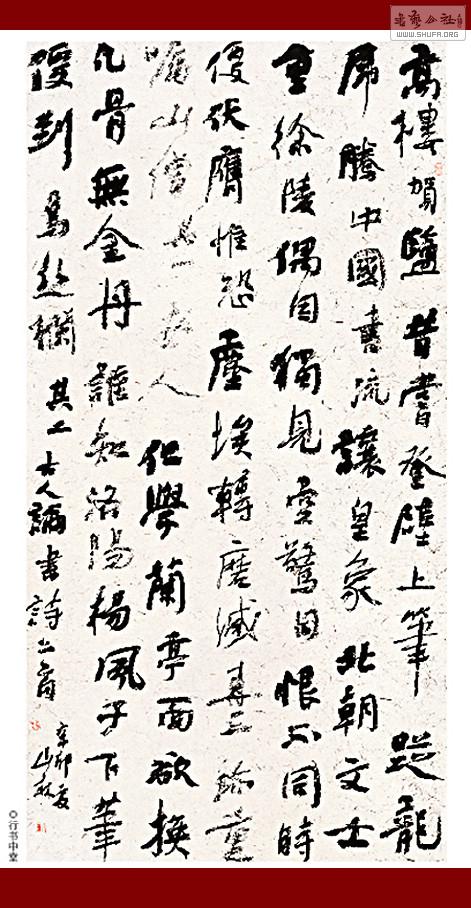 書藝公社
WWW.SHUFA.ORG
高樓賀監昔嘗登壁上筆蹤龍
虎騰中國書流讓皇象北朝文士
重徐陵偶因獨見空驚目恨不同時
便伏膺惟恐塵埃轉磨滅再三珍重
囑山僧其一世人但學蘭亭面欲換
凡骨無金丹誰知洛陽楊風子下筆
便到烏絲欄其二古人論書詩二首
辛卯夏
行书中堂